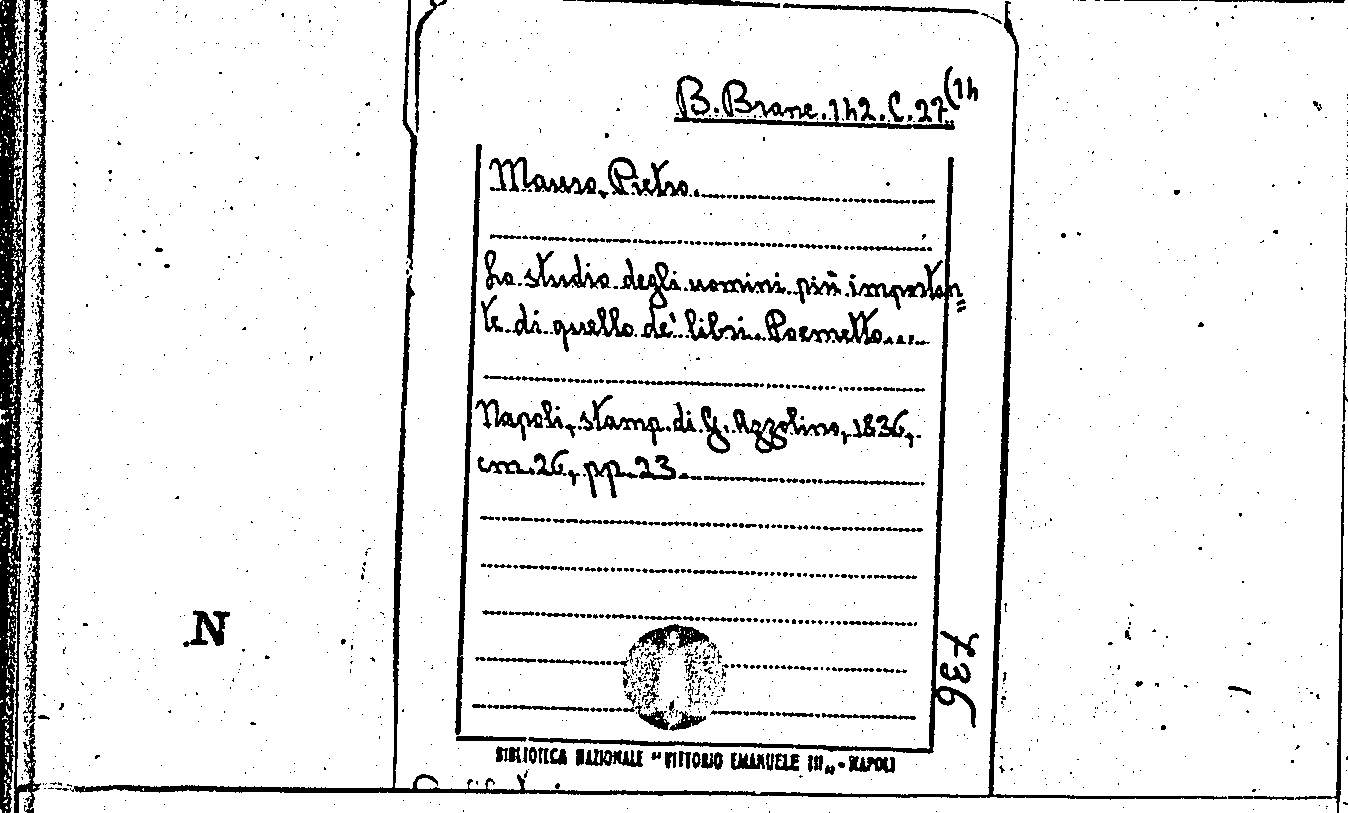 B. Branc. 142. C. 27(14
Mauro, Pietro.
Lo studio degli uomini più importan„
te di quello de' libri. Poemetto...
Napoli, stamp. di G. Azzolino, 1836,
cm. 26, pp. 23.
N
736
BIBLIOTECA NAZIONALE "VITTORIO EMANUELE III„ - NAPOLI